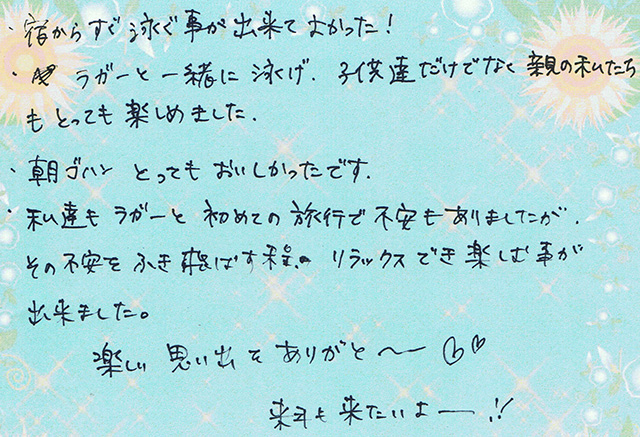 ・宿からすぐ泳ぐ事が出来てよかった！
・ラガーと一緒に泳げ、子供達だけでなく親の私たち
もとっても楽しめました．
・朝ゴハンとってもおいしかったです．
・私達もラガーと初めての旅行で不安もありましたが、
その不安をふき飛ばす程、リラックスでき楽しむ事が
出来ました。
楽しい思い出をありがと〜♡♡
来年も来たいよー！！